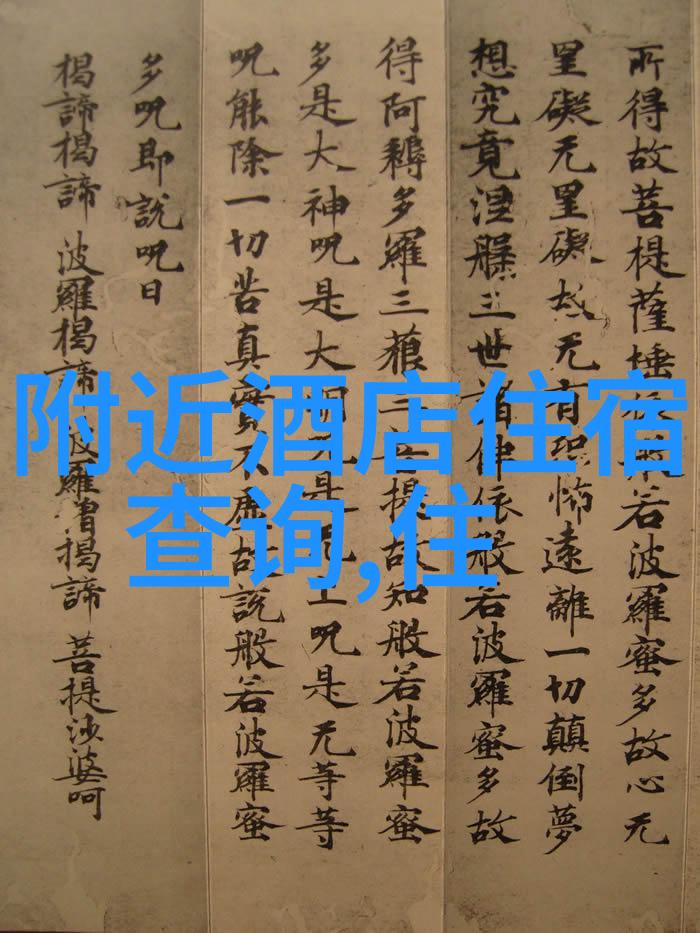 所得故菩提薩埵依般若波羅蜜多故心无
罣礙无罣礙故无有恐怖遠離一切顛倒夢
想究竟涅槃三世諸佛依般若波羅蜜多故
得阿耨多羅三藐三菩提故知般若波羅蜜
多是大神呪是大明呪是上呪是无等等
呪能除一切苦真實不虛故說般若波羅蜜
多呪即說呪曰
揭諦揭諦 波羅揭諦 波羅僧揭諦 菩提沙婆呵
附近酒店住宿
查询,住